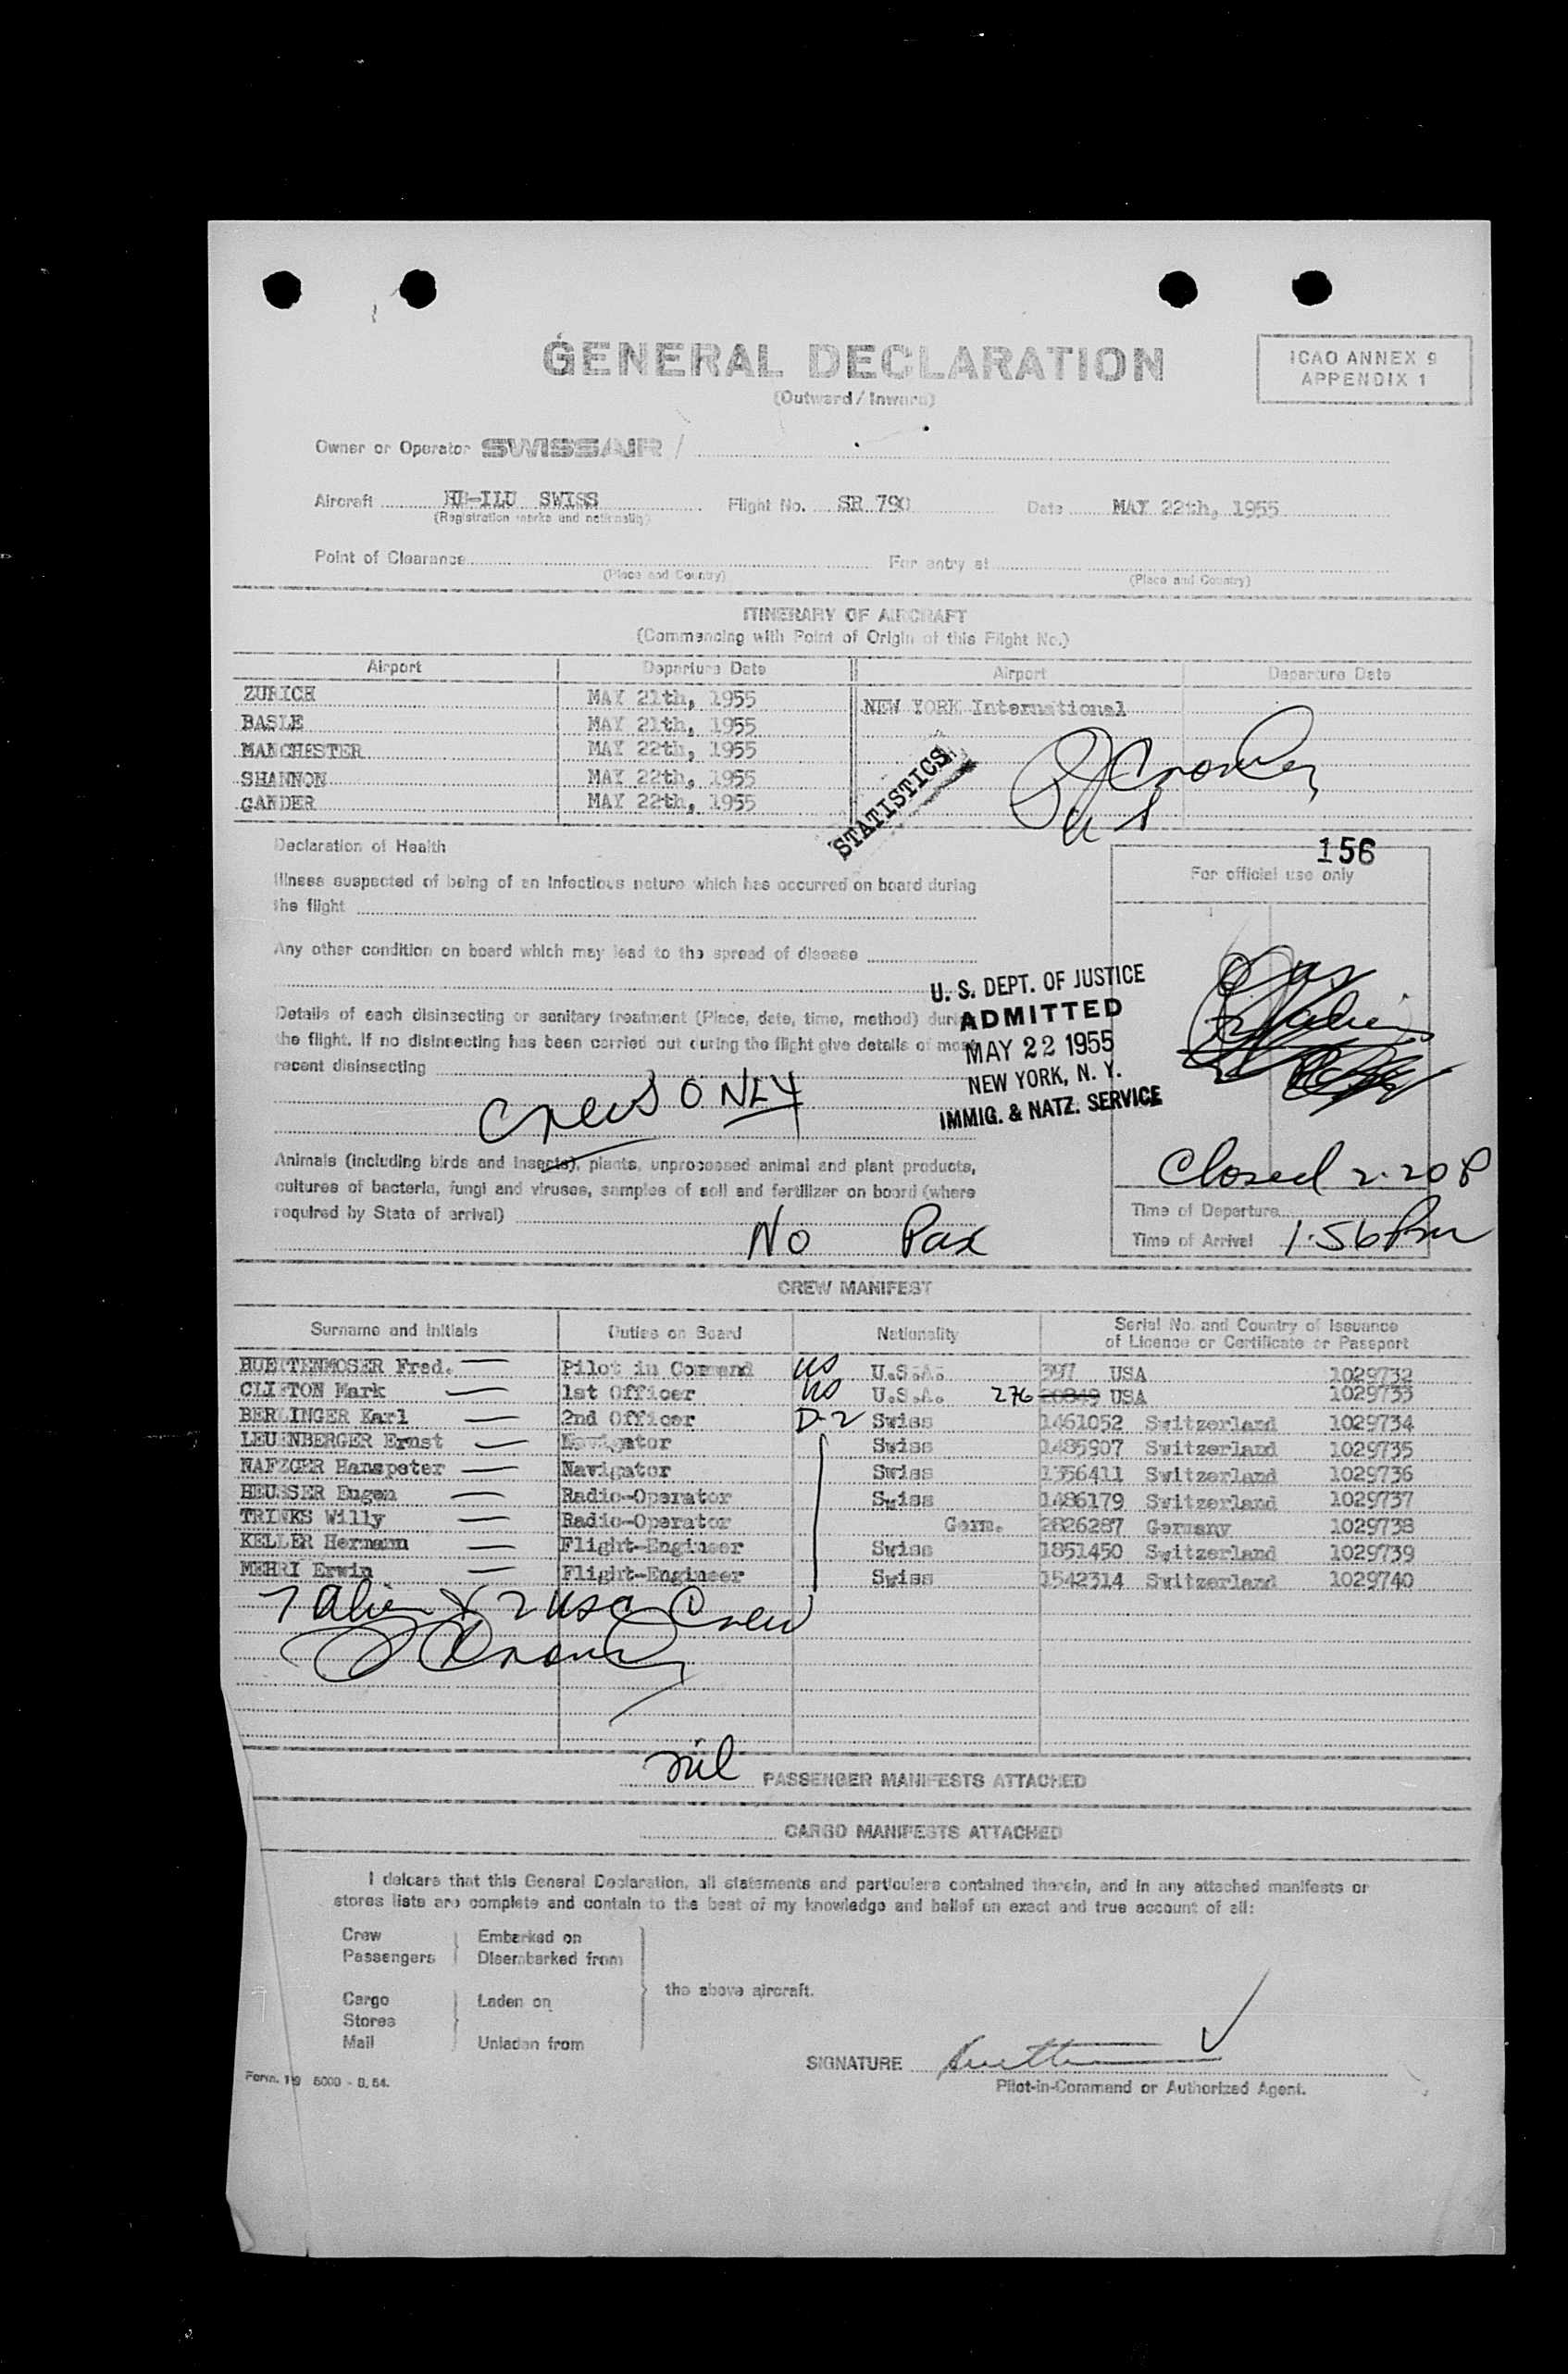 GENERAL DECLARATION
(Outward / Inward)
ICAO ANNEX 9
APPENDIX 1
Owner or Operator SWISSAIR /
Aircraft HB-ILU SWISS Flight No. SR 790 Date MAY 22th, 1955
(Registration marks and nationality)
Point of Clearance For entry at
(Place and Country) (Place and Country)
ITINERARY OF AIRCRAFT
(Commencing with Point of Origin of this Flight No.)
Airport Departure Date Airport Departure Date
ZURICH MAY 21th, 1955 NEW YORK International
BASLE MAY 21th, 1955
MANCHESTER MAY 22th, 1955
SHANNON MAY 22th, 1955
GANDER MAY 22th, 1955
STATISTICS
156
Declaration of Health
For official use only
Illness suspected of being of an infectious nature which has occurred on board during
the flight
Any other condition on board which may lead to the spread of disease
U. S. DEPT. OF JUSTICE
ADMITTED
MAY 22 1955
NEW YORK, N. Y.
IMMIG. & NATZ. SERVICE
Details of each disinsecting or sanitary treatment (Place, date, time, method) during
the flight. If no disinsecting has been carried out during the flight give details of most
recent disinsecting
Crew ONLY
Animals (including birds and insects), plants, unprocessed animal and plant products,
cultures of bacteria, fungi and viruses, samples of soil and fertilizer on board (where
required by State of arrival)
No Pax
Closed 2.20 P
Time of Departure
Time of Arrival 1.56 Pm
CREW MANIFEST
Surname and Initials Duties on Board Nationality Serial No. and Country of Issuance
of Licence or Certificate or Passport
HUETTENMOSER Fred. — Pilot in Command US U.S.A. 397 USA 1029732
CLIFTON Mark — 1st Officer US U.S.A. 276 20849 USA 1029733
BERLINGER Karl — 2nd Officer D-2 Swiss 1461052 Switzerland 1029734
LEUENBERGER Ernst — Navigator Swiss 1485907 Switzerland 1029735
NAFZGER Hanspeter — Navigator Swiss 1356411 Switzerland 1029736
HEUSSER Eugen — Radio-Operator Swiss 1486179 Switzerland 1029737
TRINKS Willy — Radio-Operator Germ. 2826287 Germany 1029738
KELLER Hermann — Flight-Engineer Swiss 1851450 Switzerland 1029739
MEHRI Erwin — Flight-Engineer Swiss 1542314 Switzerland 1029740
7 Alien & 2 USC Crew
nil PASSENGER MANIFESTS ATTACHED
CARGO MANIFESTS ATTACHED
I delcare that this General Declaration, all statements and particulars contained therein, and in any attached manifests or
stores lists are complete and contain to the best of my knowledge and belief an exact and true account of all:
Crew Embarked on
Passengers Disembarked from
the above aircraft.
Cargo Laden on
Stores
Mail Unladen from
SIGNATURE
Pilot-in-Command or Authorized Agent.